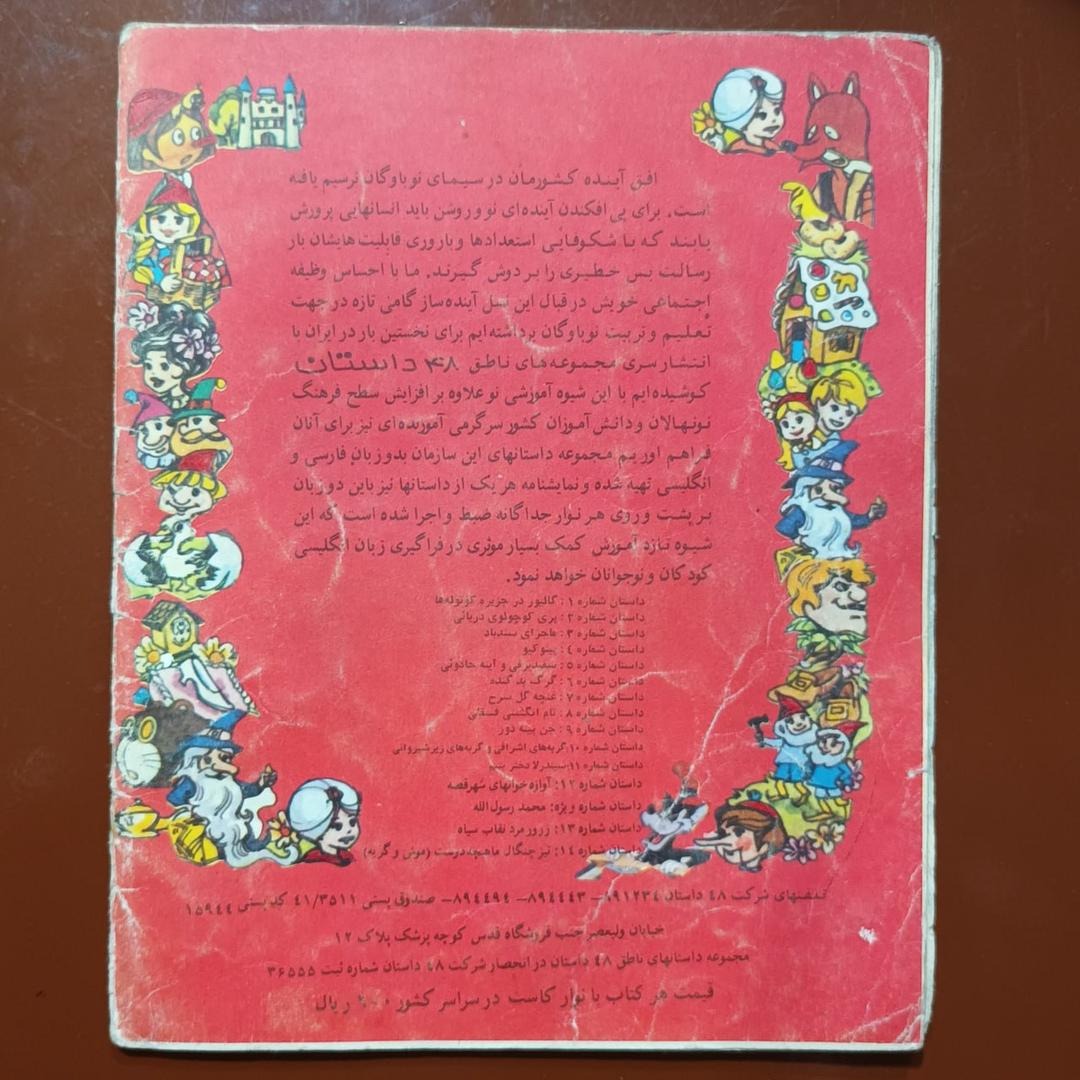 افق آینده کشورمان در سیمای نوباوگان ترسیم یافته
است. برای پی افکندن آینده‌ای نو و روشن باید انسانهایی پرورش
یابند که با شکوفایی استعدادها و باروری قابلیت‌هایشان بار
رسالت بس خطیری را بر دوش گیرند. ما با احساس وظیفه
اجتماعی خویش در قبال این نسل آینده‌ساز گامی تازه در جهت
تعلیم و تربیت نوباوگان برداشته‌ایم برای نخستین بار در ایران با
انتشار سری مجموعه‌های ناطق ۴۸ داستان
کوشیده‌ایم با این شیوه آموزشی نو علاوه بر افزایش سطح فرهنگ
نونهالان و دانش‌آموزان کشور سرگرمی آموزنده‌ای نیز برای آنان
فراهم آوریم مجموعه داستانهای این سازمان بدو زبان فارسی و
انگلیسی تهیه شده و نمایشنامه هر یک از داستانها نیز باین دو زبان
بر پشت و روی هر نوار جداگانه ضبط و اجرا شده است که این
شیوه تازه آموزش کمک بسیار موثری در فراگیری زبان انگلیسی
کودکان و نوجوانان خواهد نمود.
داستان شماره ۱ : گالیور در جزیره کوتوله‌ها
داستان شماره ۲ : پری کوچولوی دریائی
داستان شماره ۳ : ماجرای سندباد
داستان شماره ٤ : پینوکیو
داستان شماره ۵ : سفیدبرفی و آینه جادوئی
داستان شماره ٦ : گرگ بد گنده
داستان شماره ۷ : غنچه گل سرخ
داستان شماره ۸ : تام انگشتی فسقلی
داستان شماره ۹ : جن پینه دوز
داستان شماره ۱۰: گربه‌های اشرافی و گربه‌های زیرشیروانی
داستان شماره ۱۱: سیندرلا دختر یتیم
داستان شماره ۱۲: آوازه‌خوانهای شهرقصه
داستان شماره ویژه: محمد رسول‌الله
داستان شماره ۱۳: زورو مرد نقاب سیاه
داستان شماره ۱٤: تیزچنگال ماهیچه‌درست (موش و گربه)
تلفنهای شرکت ۴۸ داستان ۸۹۱۲۳٤ – ۸۹٤٤٤۳ – ۸۹٤٤۹٤ – صندوق پستی ٤۱/۳۵۱۱ کد پستی ۱۵۹٤٤
خیابان ولیعصر جنب فروشگاه قدس کوچه پزشک پلاک ۱۲
مجموعه داستانهای ناطق ۴۸ داستان در انحصار شرکت ۴۸ داستان شماره ثبت ۳۶۵۵۵
قیمت هر کتاب با نوار کاست در سراسر کشور ریال